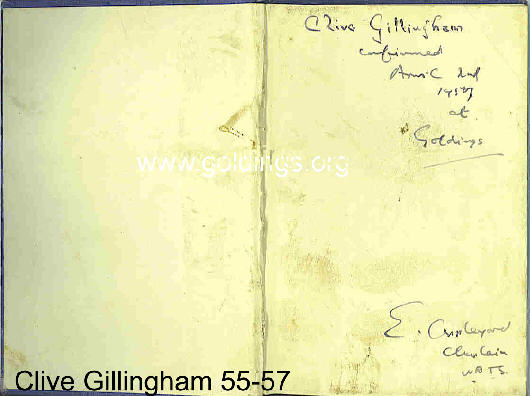 Clive Gillingham
confirmed
April 2nd
1957
at
Goldings
www.goldings.org
E. Appleyard
Chaplain
W.B.T.S.
Clive Gillingham 55-57